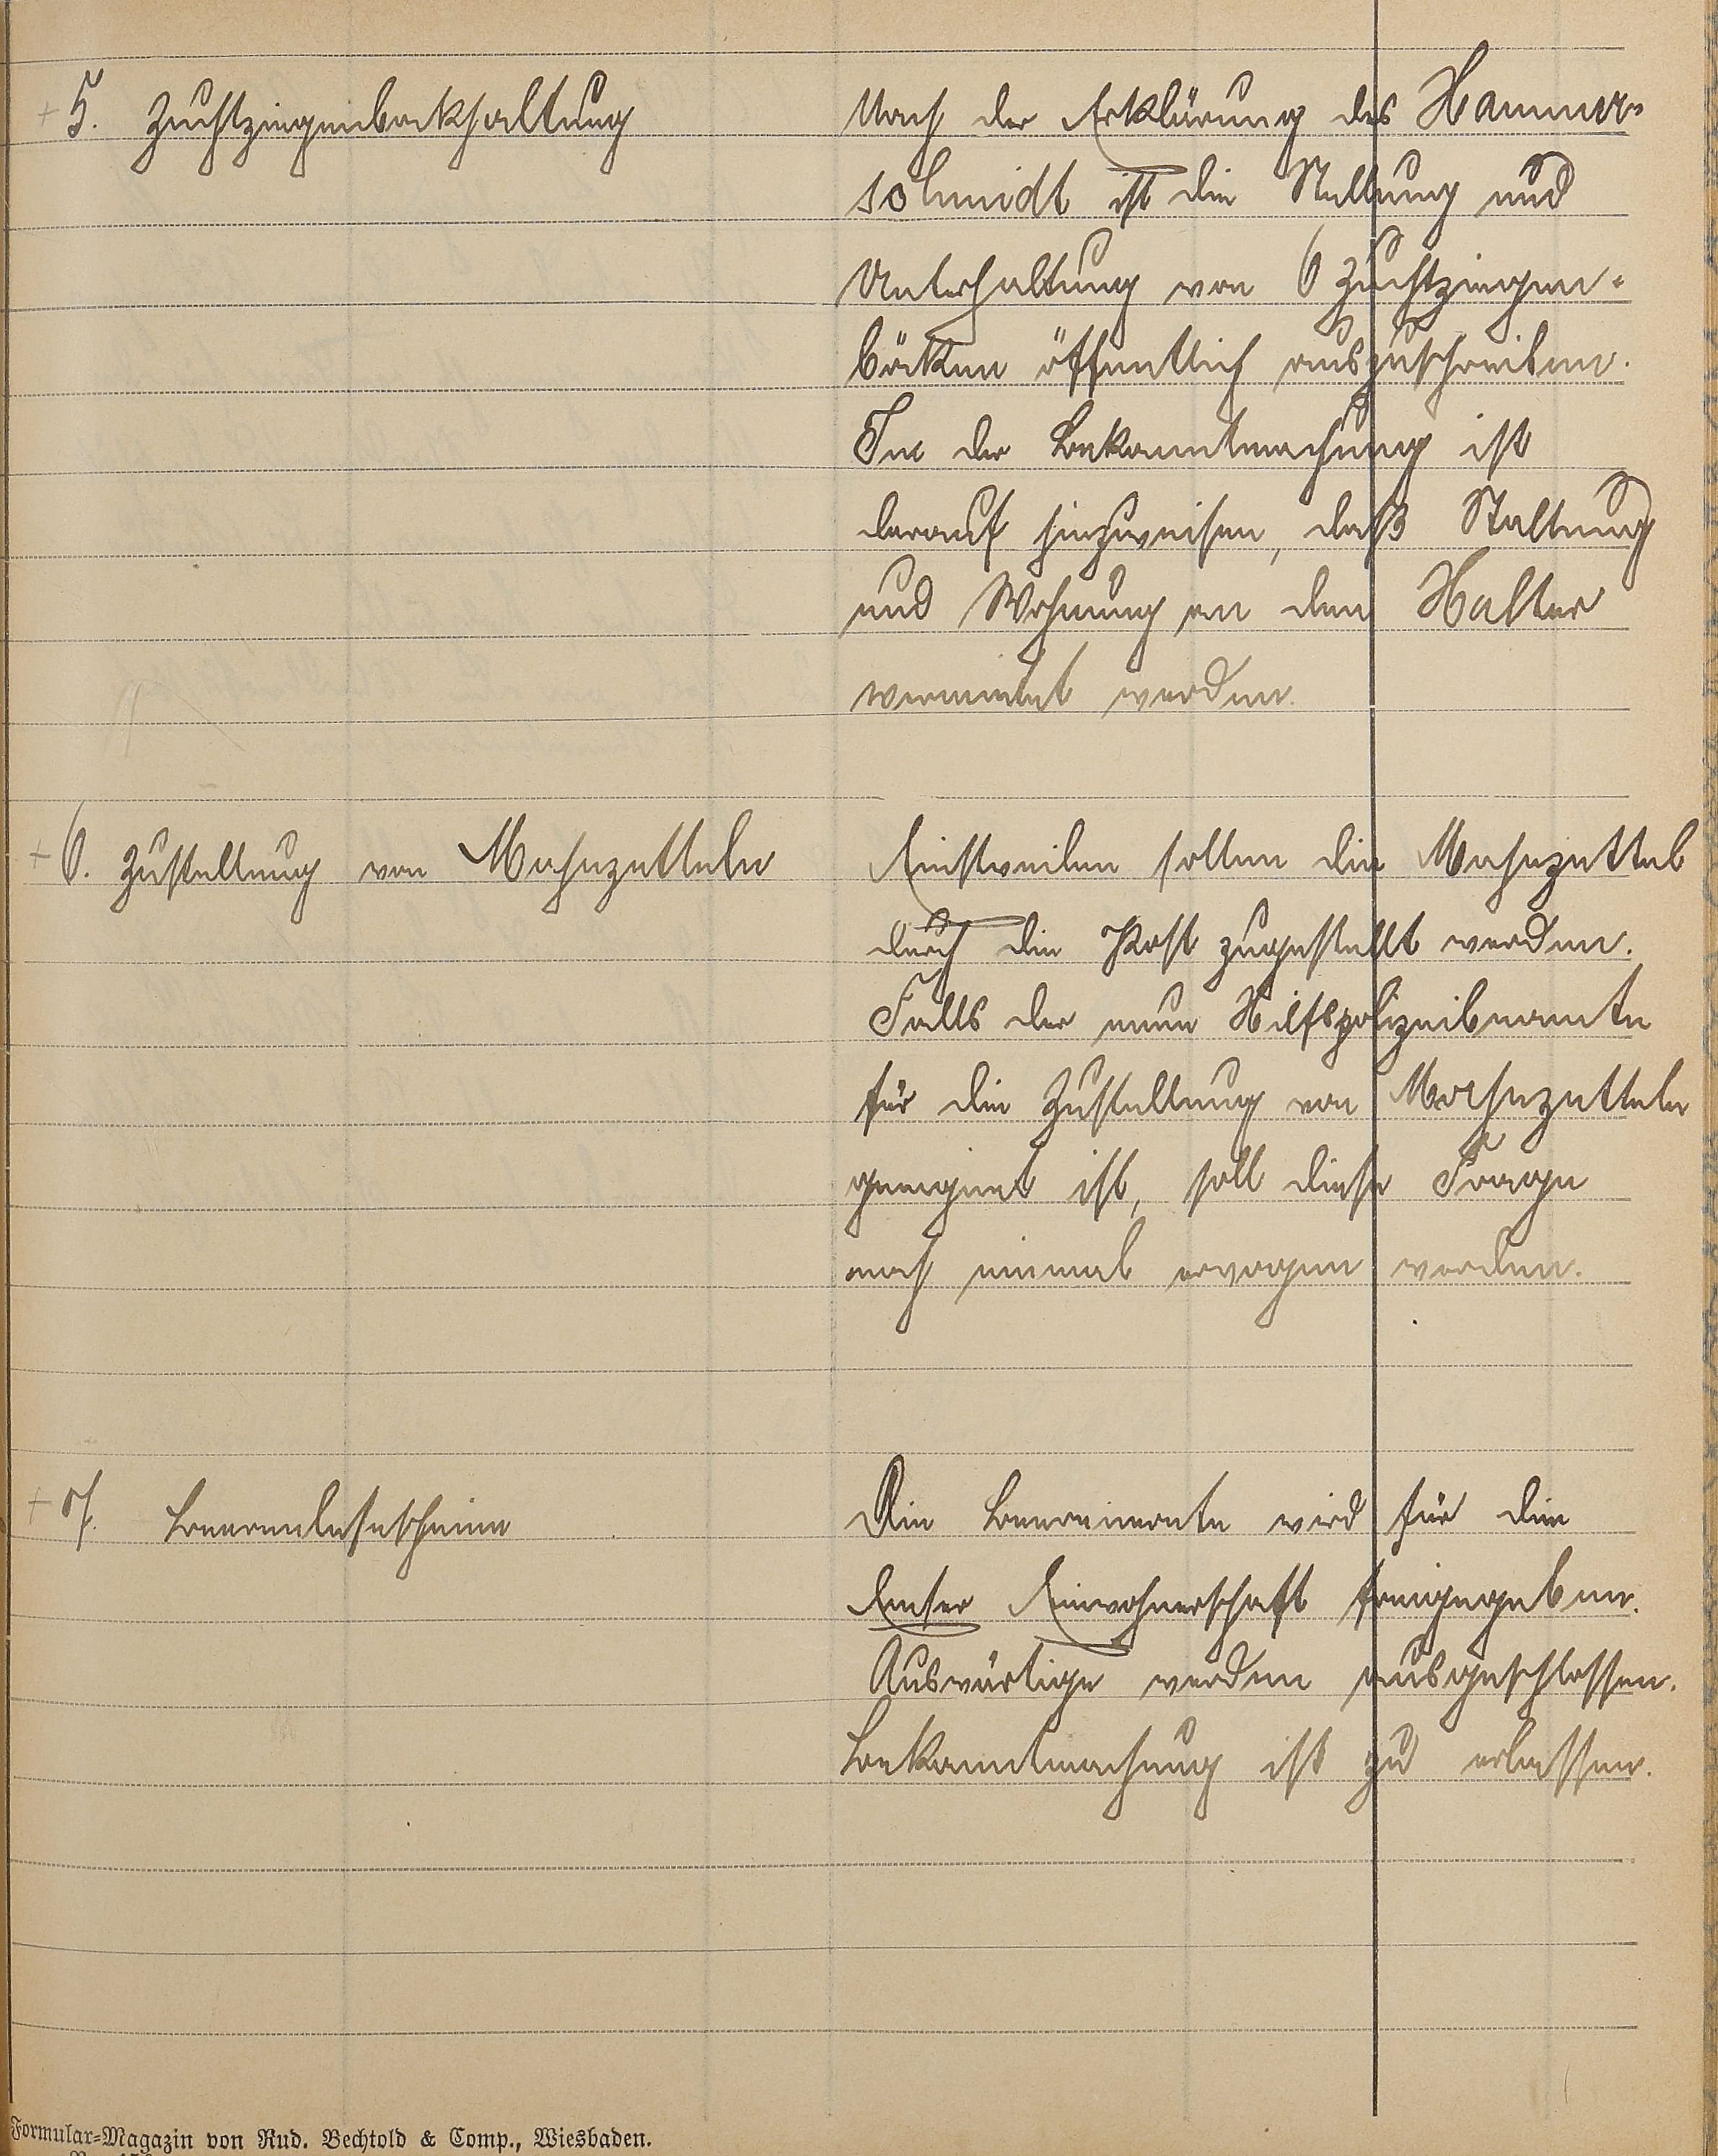 + 5. Zuchtziegenbockhaltung
Nach der Erklärung des Hammer-
schmidt ist die Stellung und
Unterhaltung von 6 Zuchtziegen-
böcken öffentlich auszuschreiben.
In der Bekanntmachung ist
darauf hinzuweisen, daß Stallung
und Wohnung an den Halter
vermietet werden.
+ 6. Zustellung von Mahnzetteln
Einstweilen sollen die Mahnzettel
durch die Post zugestellt werden.
Falls der neue Hilfspolizeibeamte
für die Zustellung von Mahnzetteln
geeignet ist, soll diese Frage
noch einmal erwogen werden.
+ 7. Beerenlesescheine
Die Beerenernte wird für die
Emser Einwohnerschaft freigegeben.
Auswärtige werden ausgeschlossen.
Bekanntmachung ist zu erlassen.
Formular-Magazin von Rud. Bechtold & Comp., Wiesbaden.